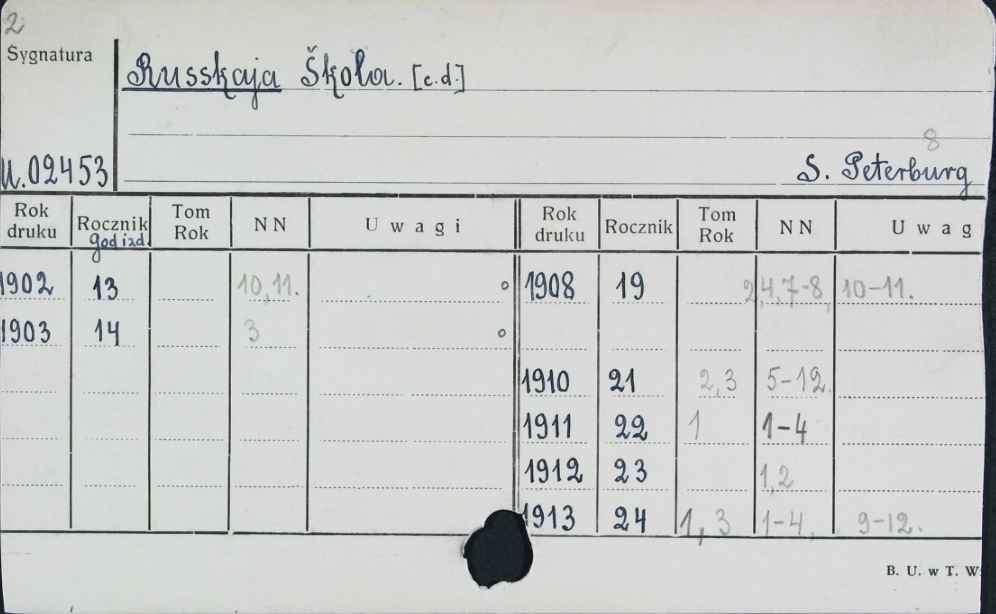 2
Sygnatura
Russkaja Škola. [c.d.]
8
U.02453
S. Peterburg
Rok druku Rocznik god izd. Tom Rok NN Uwagi Rok druku Rocznik Tom Rok NN Uwag
1902 13 10,11. 1908 19 2,4,7-8, 10-11.
1903 14 3
1910 21 2,3 5-12.
1911 22 1 1-4
1912 23 1,2
1913 24 1,3 1-4, 9-12.
B. U. w T. W